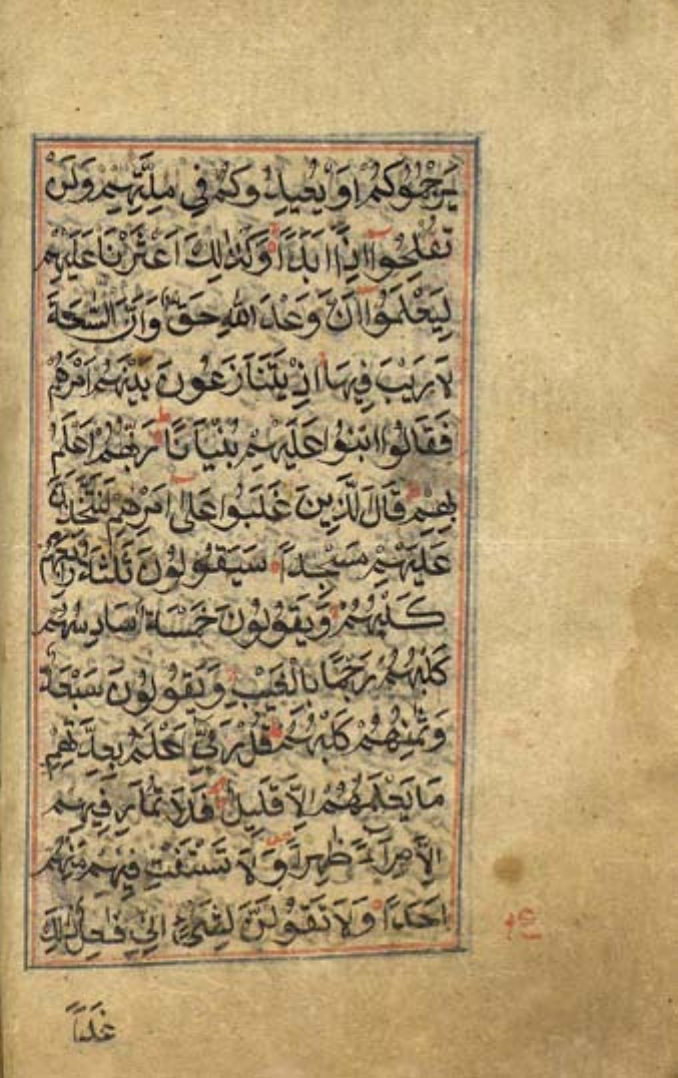 يَرْجُمُوكُمْ اَوْ يُعِيدُوكُمْ فِي مِلَّتِهِمْ وَلَنْ
تُفْلِحُوٓا اِذًا اَبَدًا وَكَذٰلِكَ اَعْثَرْنَا عَلَيْهِمْ
لِيَعْلَمُوٓا اَنَّ وَعْدَ اللّٰهِ حَقٌّ وَاَنَّ السَّاعَةَ
لَا رَيْبَ فِيهَا اِذْ يَتَنَازَعُونَ بَيْنَهُمْ اَمْرَهُمْ
فَقَالُوا ابْنُوا عَلَيْهِمْ بُنْيَانًا رَبُّهُمْ اَعْلَمُ
بِهِمْ قَالَ الَّذِينَ غَلَبُوا عَلٰٓى اَمْرِهِمْ لَنَتَّخِذَنَّ
عَلَيْهِمْ مَسْجِدًا سَيَقُولُونَ ثَلٰثَةٌ رَابِعُهُمْ
كَلْبُهُمْ وَيَقُولُونَ خَمْسَةٌ سَادِسُهُمْ
كَلْبُهُمْ رَجْمًا بِالْغَيْبِ وَيَقُولُونَ سَبْعَةٌ
وَثَامِنُهُمْ كَلْبُهُمْ قُلْ رَبِّي اَعْلَمُ بِعِدَّتِهِمْ
مَا يَعْلَمُهُمْ اِلَّا قَلِيلٌ فَلَا تُمَارِ فِيهِمْ
اِلَّا مِرَآءً ظَاهِرًا وَلَا تَسْتَفْتِ فِيهِمْ مِنْهُمْ
اَحَدًا وَلَا تَقُولَنَّ لِشَيْءٍ اِنِّي فَاعِلٌ ذٰلِكَ
غَدًا